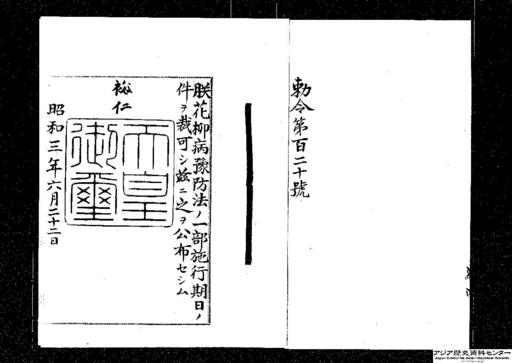 勅令第百二十號
朕花柳病豫防法ノ一部施行期日ノ
件ヲ裁可シ茲ニ之ヲ公布セシム
裕仁
天皇
御璽
昭和三年六月二十二日
アジア歴史資料センター
Japan Center for Asian Historical Records